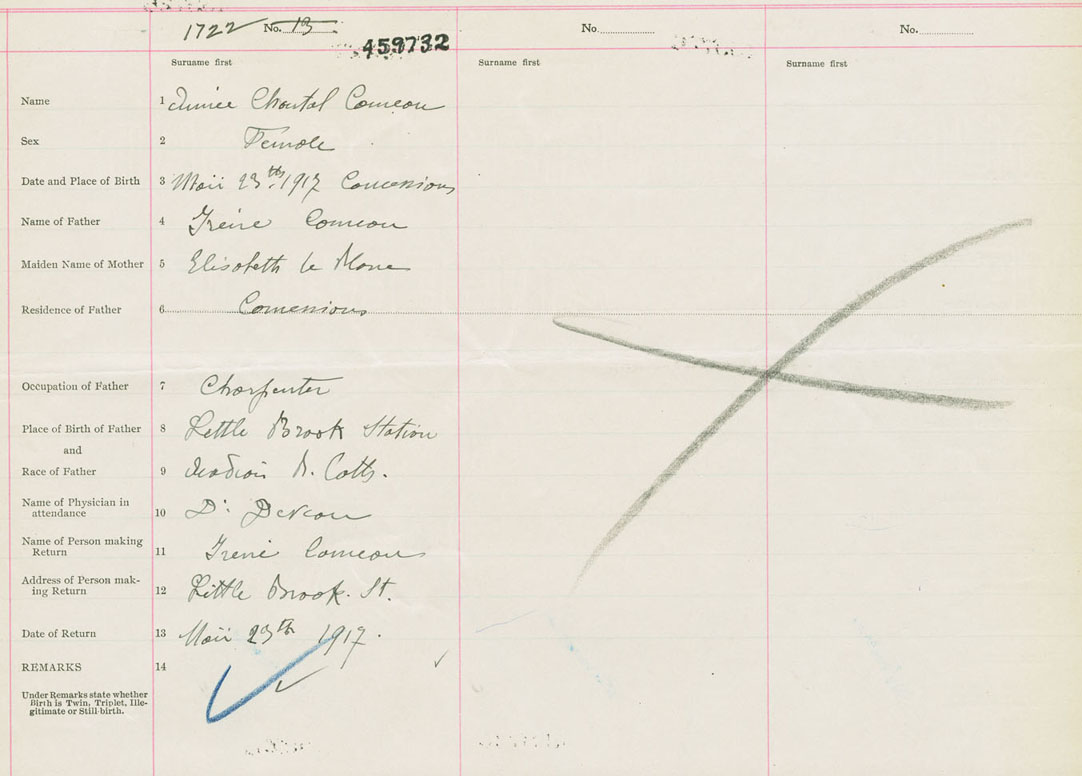 1722 No. 13 No. No.
459732
Surname first Surname first Surname first
Name 1 Aimée Chantal Comeau
Sex 2 Female
Date and Place of Birth 3 Maii 23th 1917 Concessions
Name of Father 4 Irené Comeau
Maiden Name of Mother 5 Elisabeth Le Blanc
Residence of Father 6 Concessions
Occupation of Father 7 Charpenter
Place of Birth of Father 8 Little Brook Station
and
Race of Father 9
Name of Physician in
attendance 10 Dr
Name of Person making
Return 11 Irené Comeau
Address of Person mak-
ing Return 12 Little Brook. St.
Date of Return 13 Maii 23th 1917.
REMARKS 14
Under Remarks state whether
Birth is Twin, Triplet, Ille-
gitimate or Still-birth.